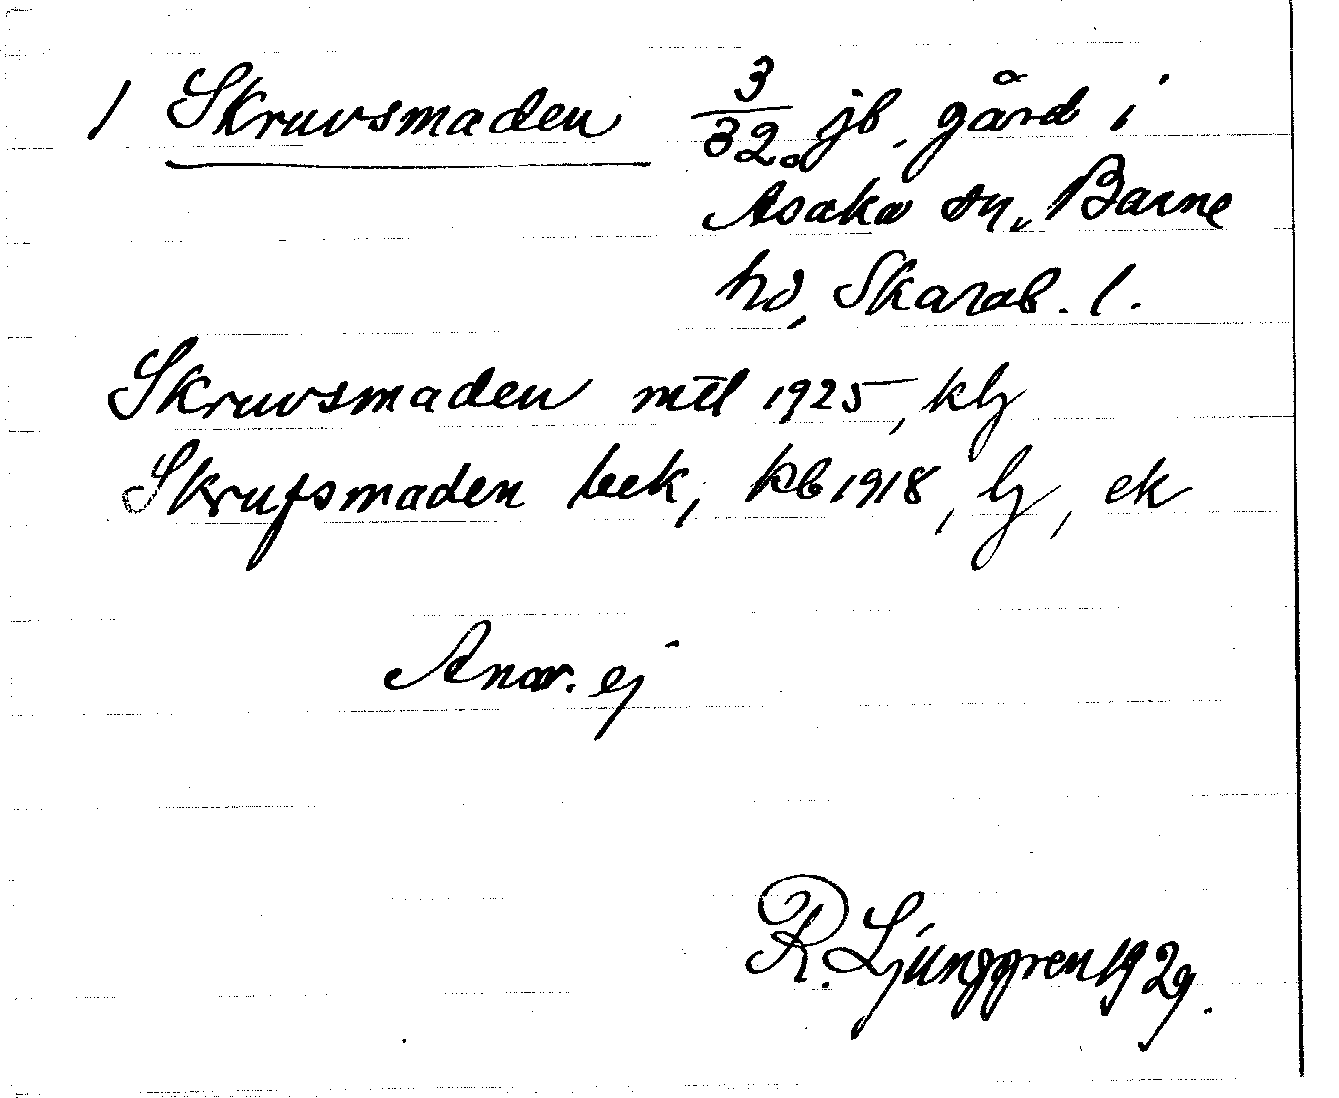 1 Skruvsmaden 3/32 jb. gård i
Asaka sn, Barne
hd, Skarab. l.
Skruvsmaden mtl 1925, klj
Skrufsmaden bek, kb 1918, lj, ek
Anor. ej
R. Ljunggren 1929.